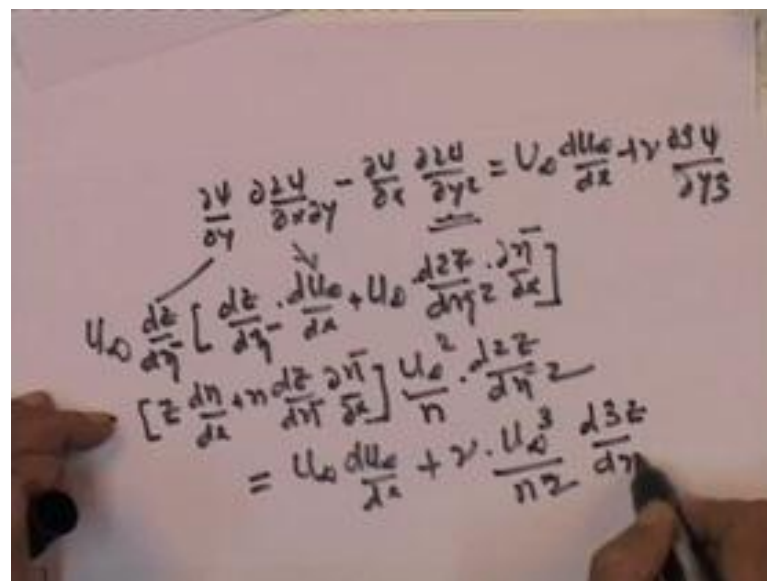 ∂ψ/∂y ∂2ψ/∂x∂y - ∂ψ/∂x ∂2ψ/∂y2 = U∞ dU∞/dx + ν ∂3ψ/∂y3
U∞ dz/dη̄ [ dz/dη̄ · dU∞/dx + U∞ d2z/dη̄2 · ∂η̄/∂x ]
[ z dn/dx + n dz/dη̄ ∂η̄/∂x ] U∞^2/n · d2z/dη̄2
= U∞ dU∞/dx + ν · U∞^3/n2 d3z/dη